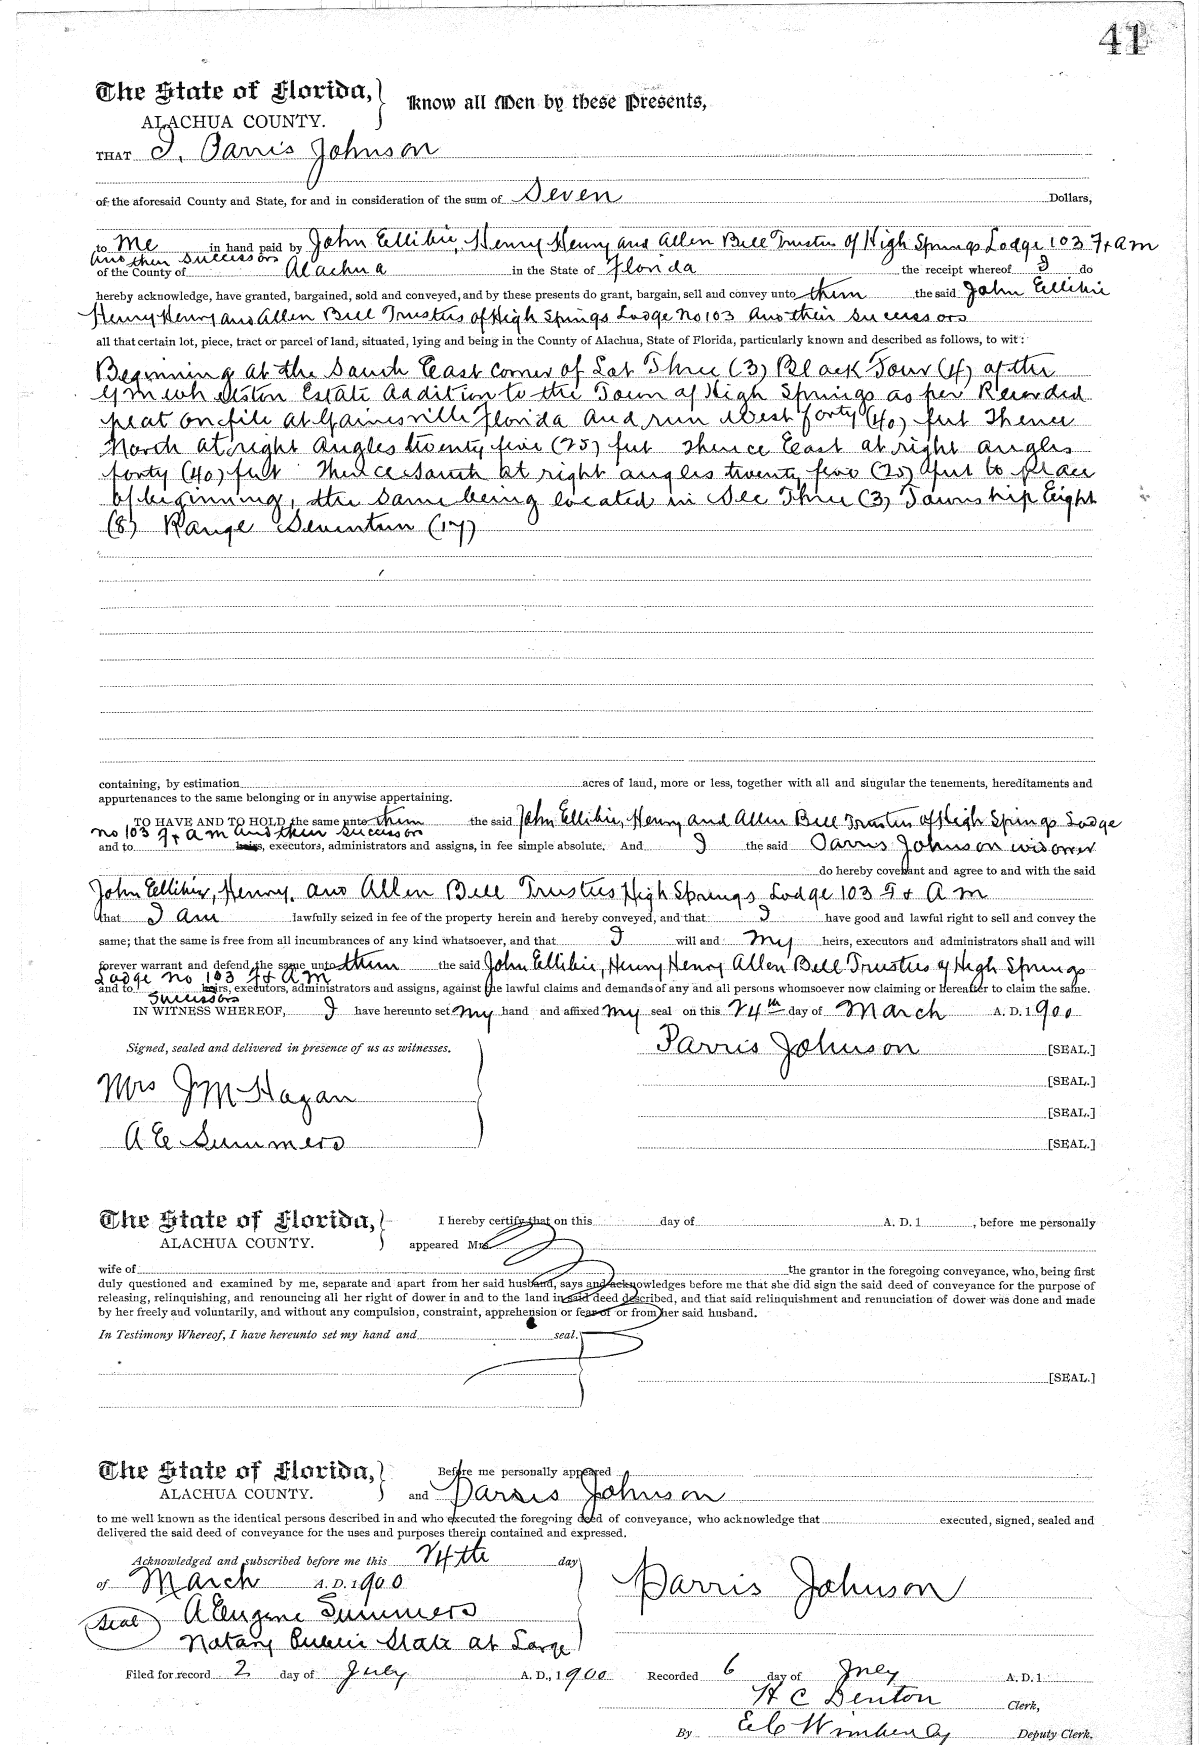 41
The State of Florida, Know all Men by these Presents,
ALACHUA COUNTY.
THAT I, Parris Johnson
of the aforesaid County and State, for and in consideration of the sum of Seven Dollars,
to me in hand paid by John Ellibie, Henry Henry and Allen Bell Trustes of High Springs Lodge 103 F & A M
and their successors
of the County of Alachua in the State of Florida the receipt whereof I do
hereby acknowledge, have granted, bargained, sold and conveyed, and by these presents do grant, bargain, sell and convey unto them the said John Ellibie
Henry Henry and Allen Bell Trustes of High Springs Lodge No 103 and their successors
all that certain lot, piece, tract or parcel of land, situated, lying and being in the County of Alachua, State of Florida, particularly known and described as follows, to wit:
Beginning at the South East corner of Lot Three (3) Block Four (4) of the
Estate Addition to the Town of High Springs as per Recorded
plat on file at Gainesville Florida and run West forty (40) feet Thence
North at right angles twenty five (25) feet Thence East at right angles
forty (40) feet Thence South at right angles twenty five (25) feet to place
of beginning, the same being located in Sec Three (3) Township Eight
(8) Range Seventeen (17)
containing, by estimation acres of land, more or less, together with all and singular the tenements, hereditaments and
appurtenances to the same belonging or in anywise appertaining.
TO HAVE AND TO HOLD the same unto them the said John Ellibie, Henry and Allen Bell Trustes of High Springs Lodge
No 103 F & A M and their successor
and to heirs, executors, administrators and assigns, in fee simple absolute. And I the said Parris Johnson widower
do hereby covenant and agree to and with the said
John Ellibie, Henry, and Allen Bell Trustes High Springs Lodge 103 F & A M
that I am lawfully seized in fee of the property herein and hereby conveyed, and that I have good and lawful right to sell and convey the
same; that the same is free from all incumbrances of any kind whatsoever, and that I will and my heirs, executors and administrators shall and will
forever warrant and defend the same unto them the said John Ellibie, Henry Henry Allen Bell Trustes of High Springs
Lodge No 103 F & A M
and to heirs, executors, administrators and assigns, against the lawful claims and demands of any and all persons whomsoever now claiming or hereafter to claim the same.
Successors
IN WITNESS WHEREOF, I have hereunto set my hand and affixed my seal on this 24th day of March A. D. 1900
Signed, sealed and delivered in presence of us as witnesses. Parris Johnson [SEAL.]
[SEAL.]
Mrs J M Hagan
[SEAL.]
A E Summers [SEAL.]
The State of Florida, I hereby certify that on this day of A. D. 1 , before me personally
ALACHUA COUNTY. appeared Mrs.
wife of the grantor in the foregoing conveyance, who, being first
duly questioned and examined by me, separate and apart from her said husband, says and acknowledges before me that she did sign the said deed of conveyance for the purpose of
releasing, relinquishing, and renouncing all her right of dower in and to the land in said deed described, and that said relinquishment and renunciation of dower was done and made
by her freely and voluntarily, and without any compulsion, constraint, apprehension or fear of or from her said husband.
In Testimony Whereof, I have hereunto set my hand and seal.
[SEAL.]
The State of Florida, Before me personally appeared
ALACHUA COUNTY. and Parris Johnson
to me well known as the identical persons described in and who executed the foregoing deed of conveyance, who acknowledge that executed, signed, sealed and
delivered the said deed of conveyance for the uses and purposes therein contained and expressed.
Acknowledged and subscribed before me this 24th day
of March A. D. 1900 Parris Johnson
Seal A Eugene Summers
Notary Public State at Large
Filed for record 2 day of July A. D., 1900 Recorded 6 day of July A. D. 1
H C Denton Clerk,
By E C Wimberly Deputy Clerk.